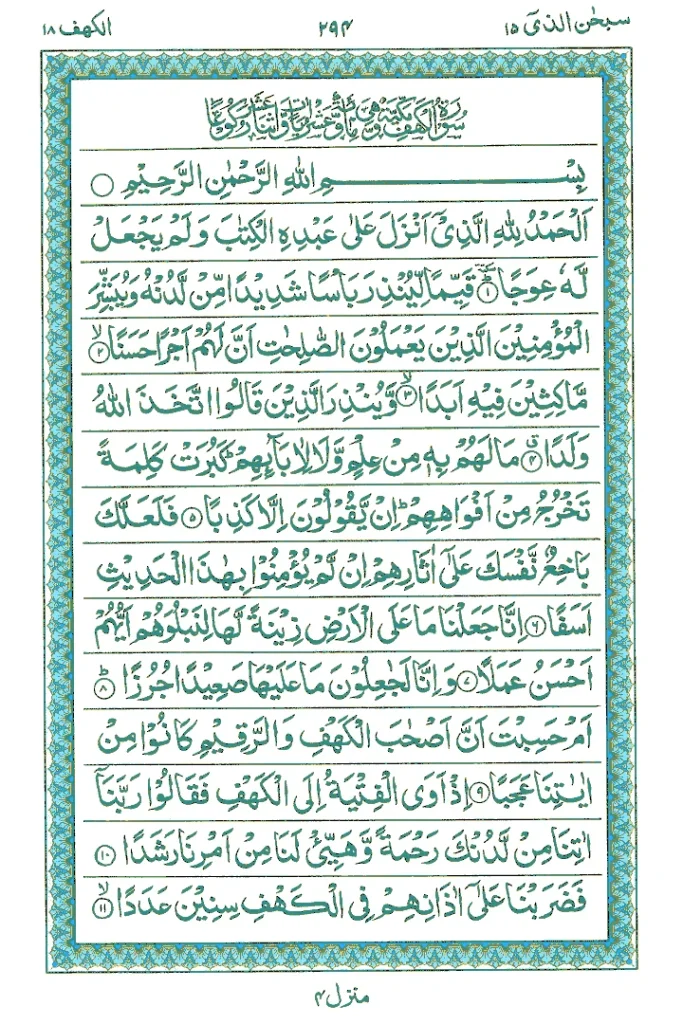 سبحٰن الذیۤ ۱۵
۲۹۴
الکہف ۱۸
سُوْرَةُ الْكَهْفِ مَكِّيَّةٌ وَّهِيَ مِائَةٌ وَّعَشْرُ اٰيَاتٍ وَّاثْنَا عَشَرَ رُكُوْعًا
بِسْمِ اللّٰهِ الرَّحْمٰنِ الرَّحِيْمِ ○
اَلْحَمْدُ لِلّٰهِ الَّذِيْۤ اَنْزَلَ عَلٰى عَبْدِهِ الْكِتٰبَ وَلَمْ يَجْعَلْ
لَّهٗ عِوَجًا ؕ﴿۱﴾ قَيِّمًا لِّيُنْذِرَ بَاْسًا شَدِيْدًا مِّنْ لَّدُنْهُ وَيُبَشِّرَ
الْمُؤْمِنِيْنَ الَّذِيْنَ يَعْمَلُوْنَ الصّٰلِحٰتِ اَنَّ لَهُمْ اَجْرًا حَسَنًا ۙ﴿۲﴾
مَّاكِثِيْنَ فِيْهِ اَبَدًا ۙ﴿۳﴾ وَّيُنْذِرَ الَّذِيْنَ قَالُوا اتَّخَذَ اللّٰهُ
وَلَدًا ۗ﴿۴﴾ مَا لَهُمْ بِهٖ مِنْ عِلْمٍ وَّلَا لِاٰبَآئِهِمْ ؕ كَبُرَتْ كَلِمَةً
تَخْرُجُ مِنْ اَفْوَاهِهِمْ ؕ اِنْ يَّقُوْلُوْنَ اِلَّا كَذِبًا ﴿۵﴾ فَلَعَلَّكَ
بَاخِعٌ نَّفْسَكَ عَلٰۤى اٰثَارِهِمْ اِنْ لَّمْ يُؤْمِنُوْا بِهٰذَا الْحَدِيْثِ
اَسَفًا ﴿۶﴾ اِنَّا جَعَلْنَا مَا عَلَى الْاَرْضِ زِيْنَةً لَّهَا لِنَبْلُوَهُمْ اَيُّهُمْ
اَحْسَنُ عَمَلًا ﴿۷﴾ وَاِنَّا لَجٰعِلُوْنَ مَا عَلَيْهَا صَعِيْدًا جُرُزًا ؕ﴿۸﴾
اَمْ حَسِبْتَ اَنَّ اَصْحٰبَ الْكَهْفِ وَالرَّقِيْمِ كَانُوْا مِنْ
اٰيٰتِنَا عَجَبًا ﴿۹﴾ اِذْ اَوَى الْفِتْيَةُ اِلَى الْكَهْفِ فَقَالُوْا رَبَّنَاۤ
اٰتِنَا مِنْ لَّدُنْكَ رَحْمَةً وَّهَيِّئْ لَنَا مِنْ اَمْرِنَا رَشَدًا ﴿۱۰﴾
فَضَرَبْنَا عَلٰۤى اٰذَانِهِمْ فِى الْكَهْفِ سِنِيْنَ عَدَدًا ۙ﴿۱۱﴾
منزل ۴